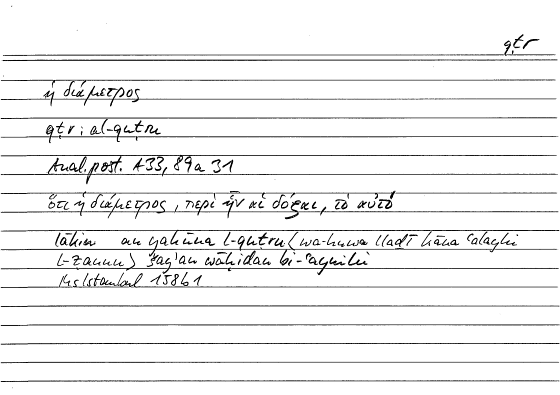 qṭr
ἡ διάμετρος
qṭr: al-quṭru
Anal. post. A33, 89a 31
ὅτι ἡ διάμετρος, περὶ ἣν αἱ δόξαι, τὸ αὐτό
lākin an yakūna l-quṭru (wa-huwa lladī kāna ʿalayhi
l-ẓannu) šayʾan wāḥidan bi-ʿaynihi
Ms Istanbul 158b1